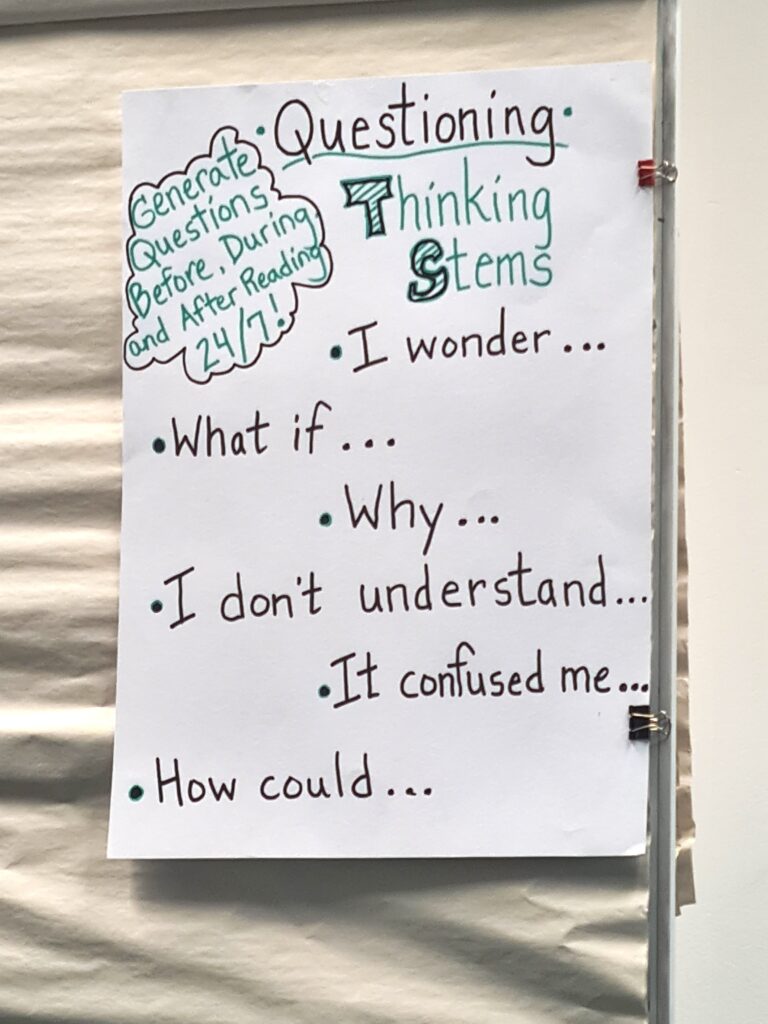 • Questioning •
Generate
Questions
Before, During,
and After Reading
24/7!
Thinking
Stems
• I wonder...
• What if...
• Why...
• I don't understand...
• It confused me...
• How could...